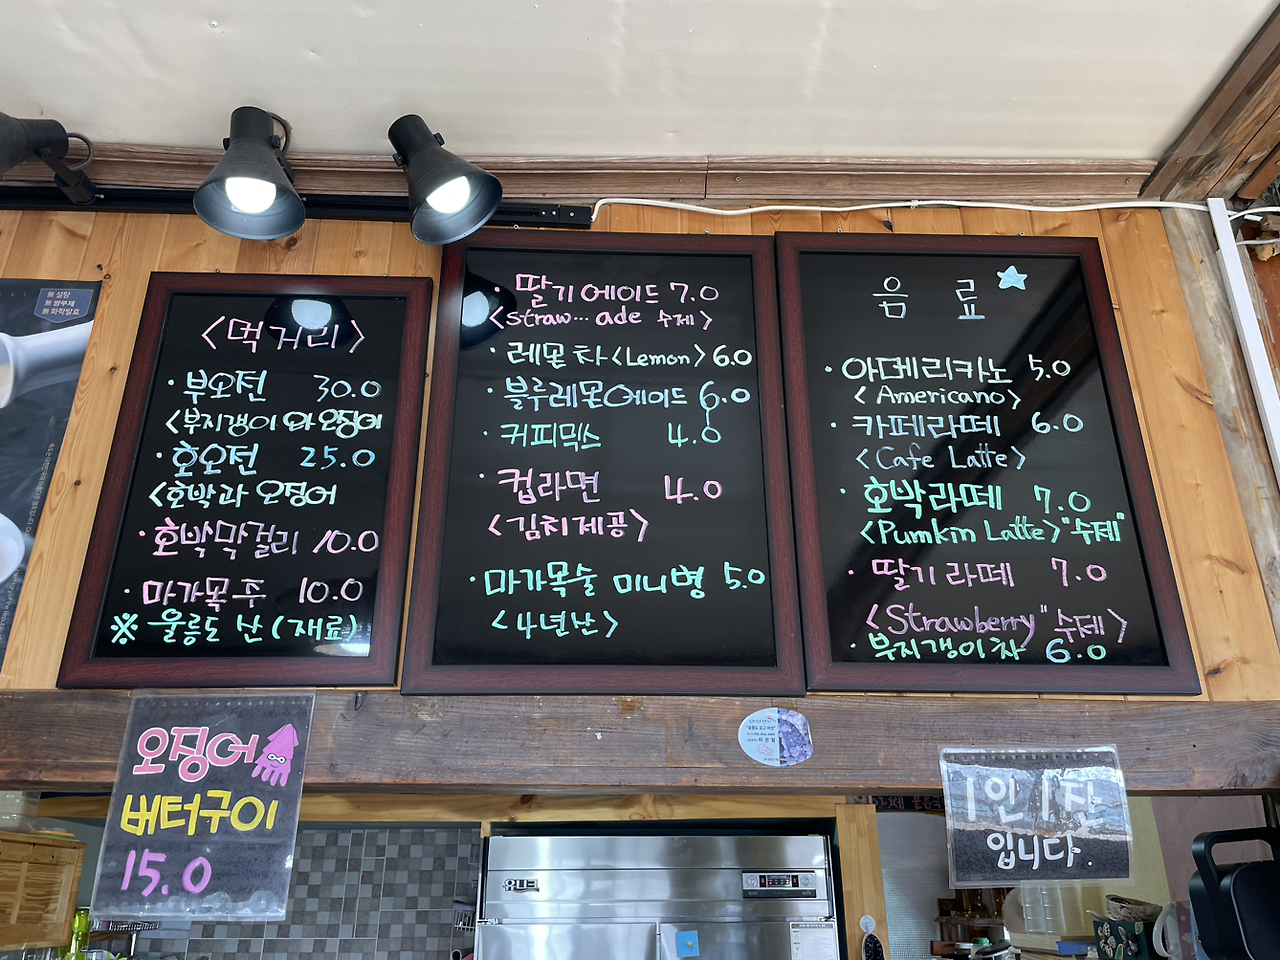 無 설탕
無 방부제
無 화학발효
<먹거리>
· 부오전 30.0
<부지갱이 와 오징어
· 호오전 25.0
<호박과 오징어
· 호박막걸리 10.0
· 마가목주 10.0
※ 울릉도 산 (재료)
· 딸기에이드 7.0
<straw... ade 수제>
· 레몬차 <Lemon> 6.0
· 블루레몬에이드 6.0
· 커피믹스 4.0
· 컵라면 4.0
<김치제공>
· 마가목술 미니병 5.0
<4년산>
음료
· 아메리카노 5.0
<Americano>
· 카페라떼 6.0
<Cafe Latte>
· 호박라떼 7.0
<Pumkin Latte> "수제"
· 딸기라떼 7.0
<Strawberry "수제>
· 부지갱이차 6.0
오징어
버터구이
15.0
1인 1잔
입니다.
유니크